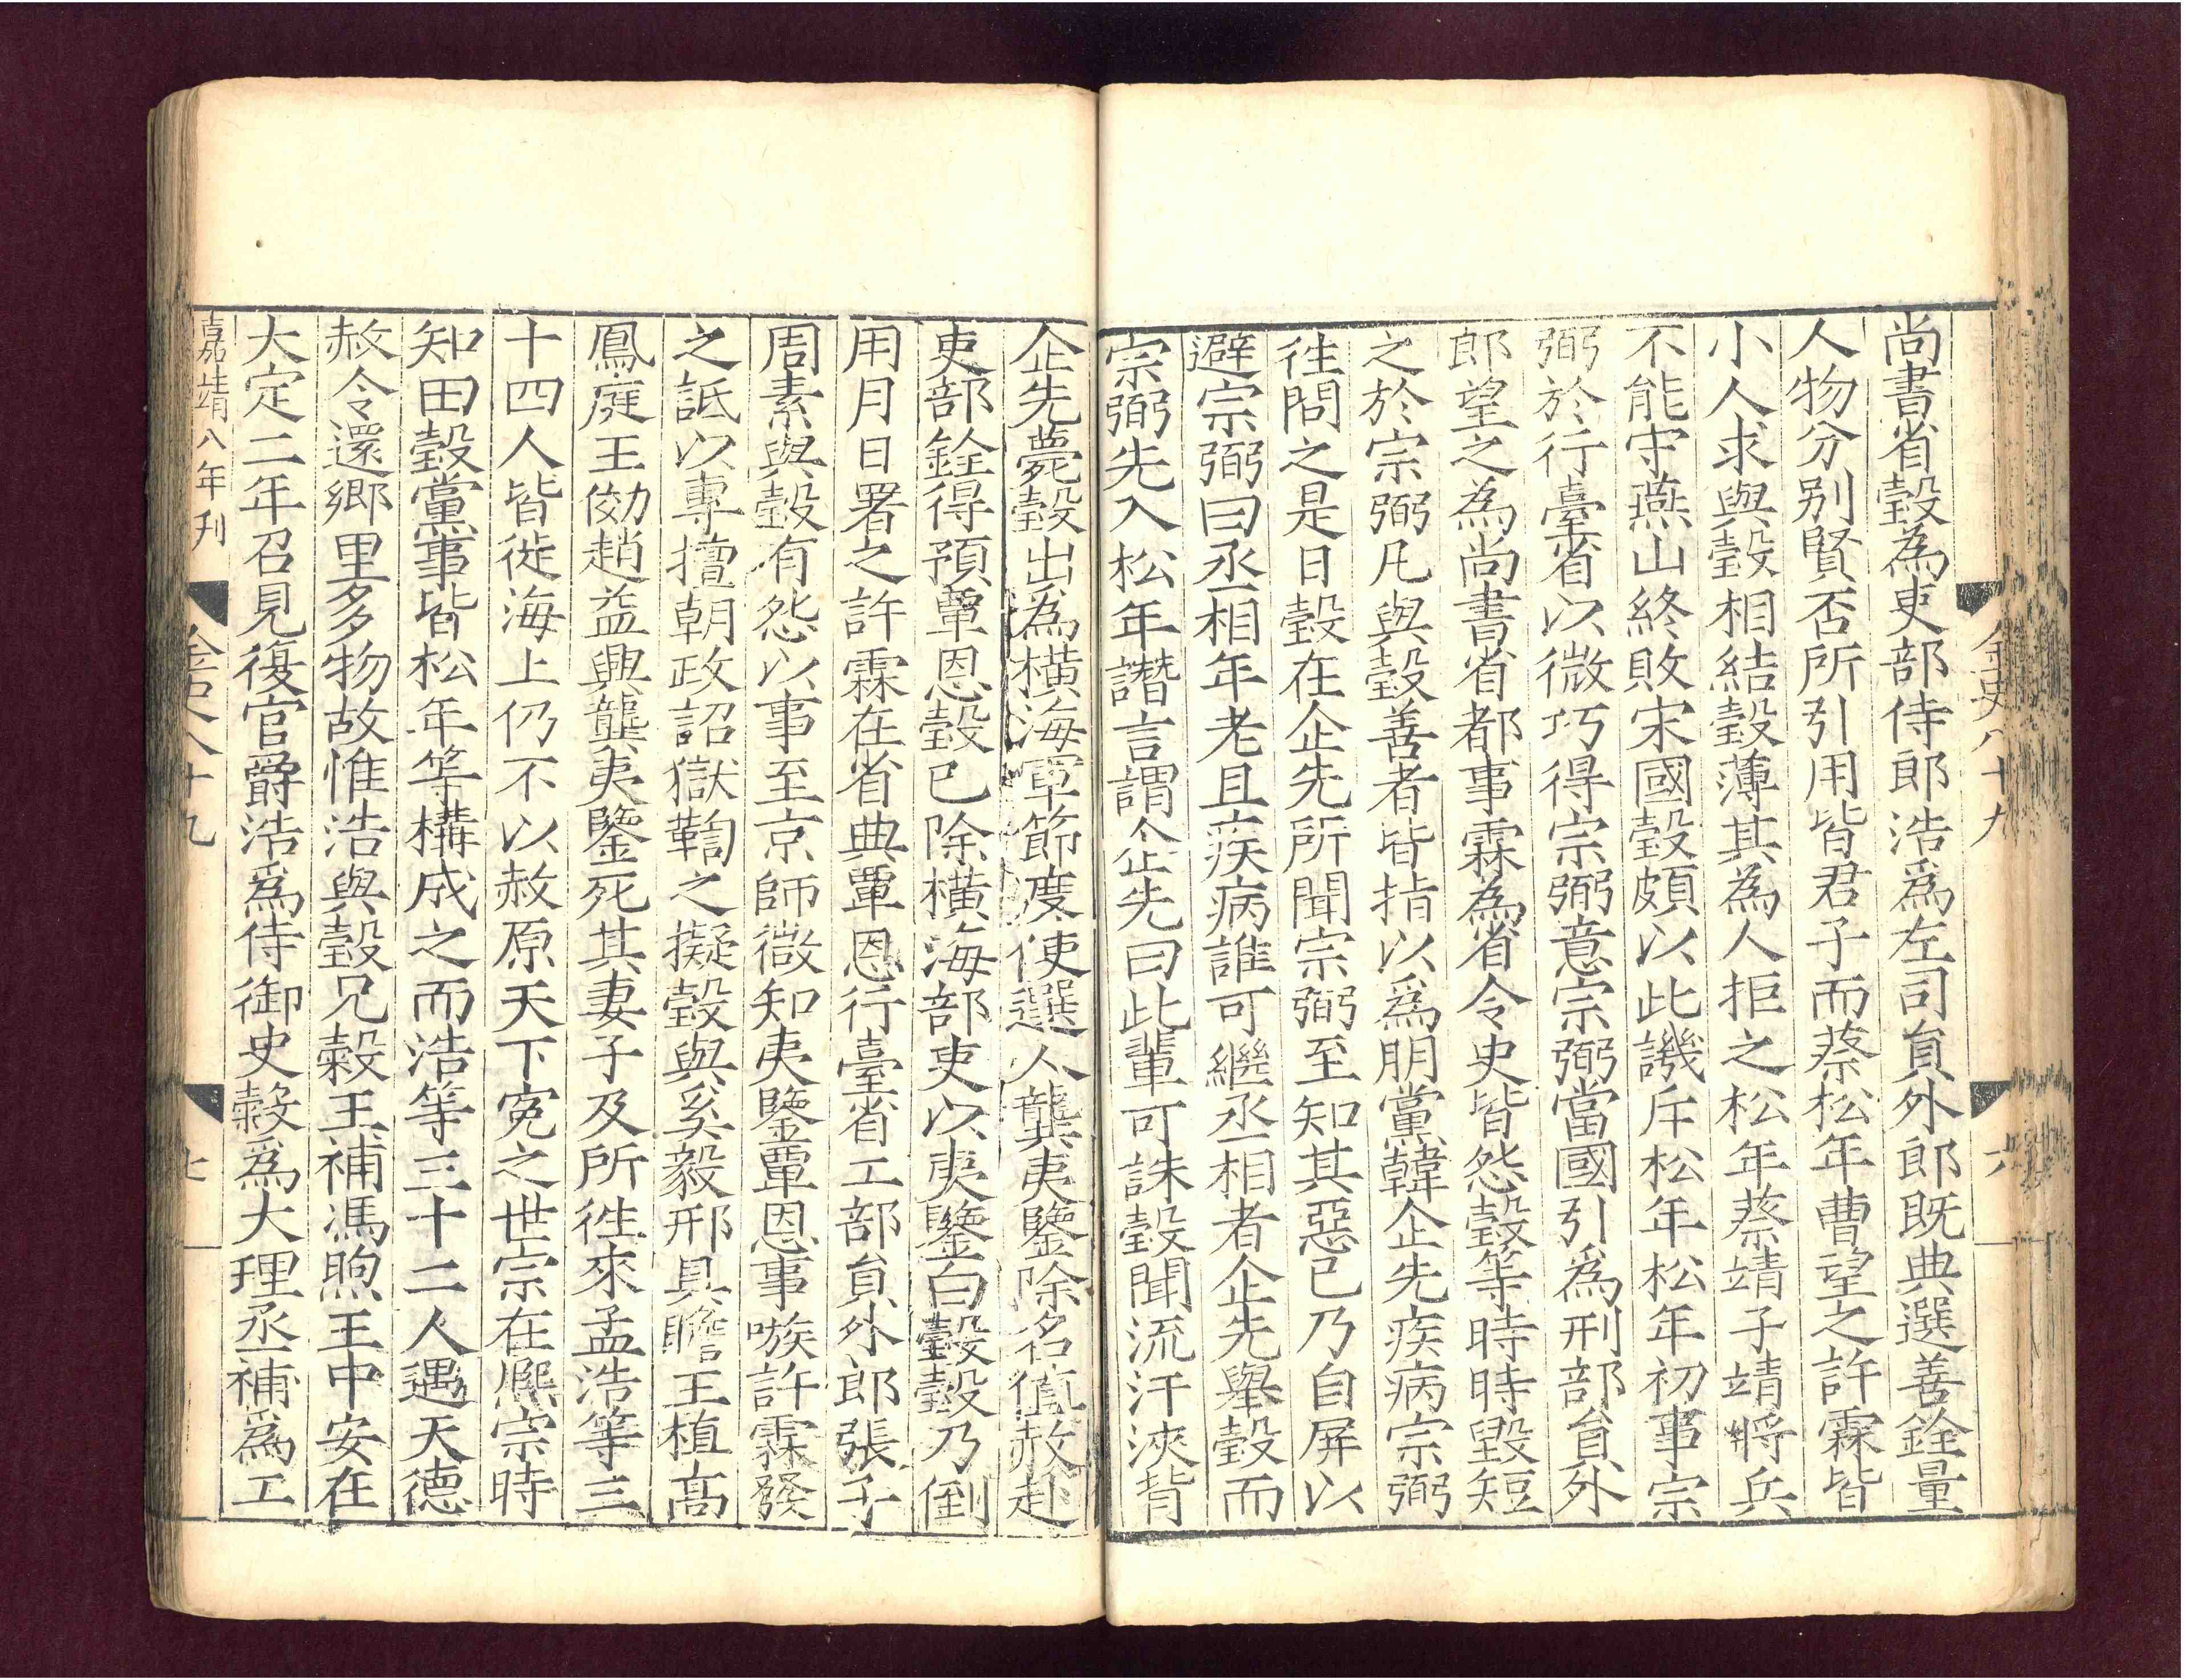 金史八十九
六
尚書省瑴為吏部侍郎浩爲左司員外郎既典選善銓量
人物分别賢否所引用皆君子而蔡松年曹望之許霖皆
小人求與瑴相結瑴薄其為人拒之松年蔡靖子靖將兵
不能守燕山終敗宋國瑴頗以此譏斥松年松年初事宗
弼於行臺省以微巧得宗弼意宗弼當國引爲刑部員外
郎望之為尚書省都事霖為省令史皆怨瑴等時時毀短
之於宗弼凡與瑴善者皆指以爲朋黨韓企先疾病宗弼
徃問之是日瑴在企先所聞宗弼至知其惡已乃自屏以
避宗弼曰丞相年老且疾病誰可繼丞相者企先舉瑴而
宗弼先入松年譖言謂企先曰此輩可誅瑴聞流汗浹背
企先薨瑴出為橫海軍節度使選人龔夷鑒除名值赦赴
吏部銓得預覃恩瑴已除橫海部吏以夷鑒白瑴瑴乃倒
用月日署之許霖在省典覃恩行臺省工部員外郎張子
周素與瑴有怨以事至京師微知夷鑒覃恩事嗾許霖發
之詆以專擅朝政詔獄鞫之擬瑴與奚毅邢具瞻王植髙
鳳庭王傚趙益興龔夷鑒死其妻子及所徃來孟浩等三
十四人皆徙海上仍不以赦原天下寃之世宗在熈宗時
知田瑴黨事皆松年等構成之而浩等三十二人遇天德
赦令還鄉里多物故惟浩與瑴兄穀王補馮煦王中安在
大定二年召見復官爵浩爲侍御史穀爲大理丞補爲工
嘉靖八年刊
金史八十九
七